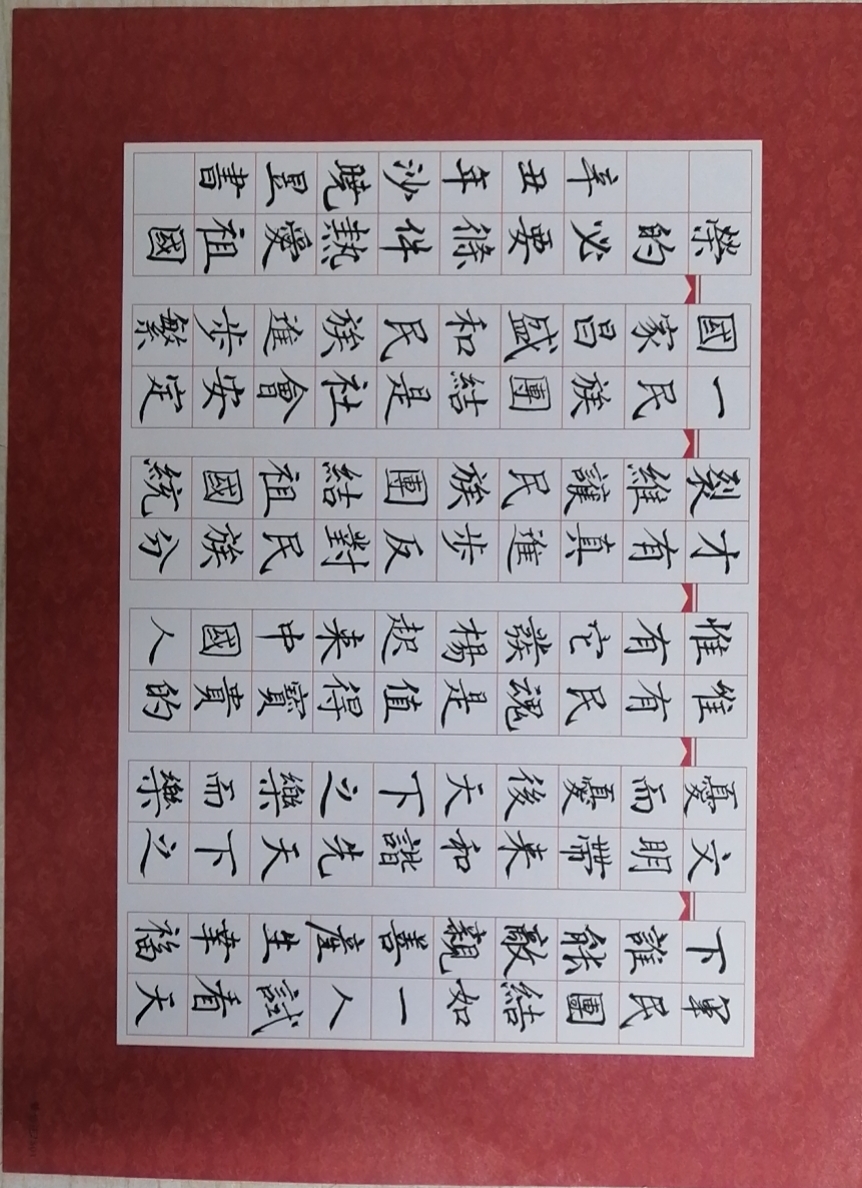 軍民團結如一人試看天
下誰能敵親善產生幸福
文明帶來和諧先天下之
憂而憂後天下之樂而樂
惟有民魂是值得寶貴的
惟有它發揚起來中國人
才有真進步反對民族分
裂維護民族團結祖國統
一民族團結是社會安定
國家昌盛和民族進步繁
榮的必要條件熱愛祖國
辛丑年沙曉昱書